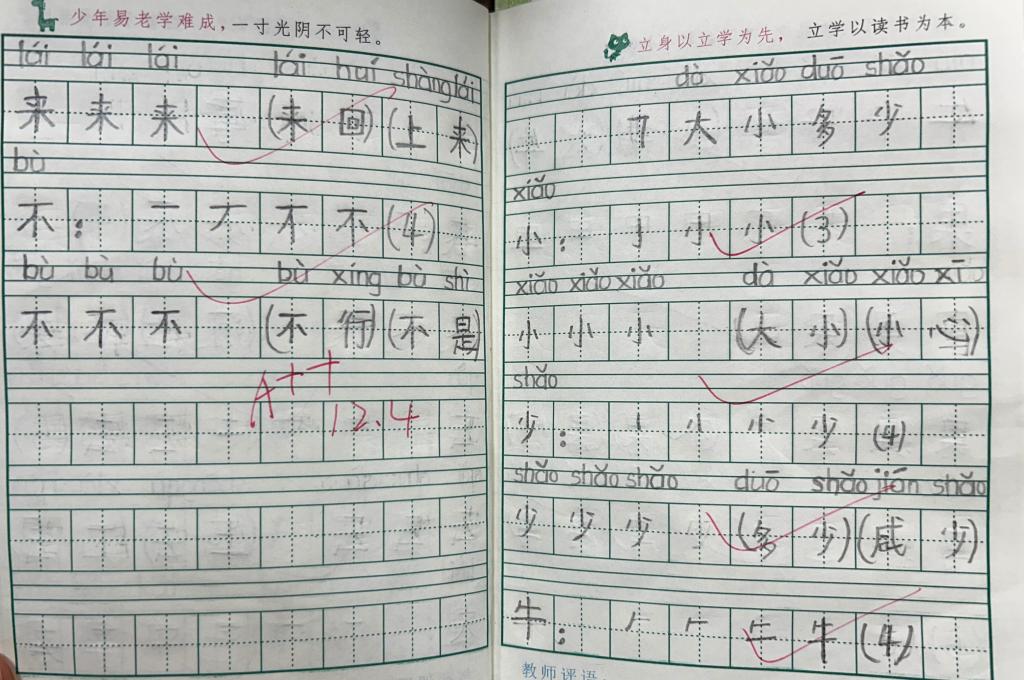 少年易老学难成，一寸光阴不可轻。
lái lái lái lái huí shàng lái
来 来 来 (来 回) (上 来)
bù
不： 一 丆 不 不 (4)
bù bù bù bù xíng bù shì
不 不 不 (不 行) (不 是)
A++
12.4
立身以立学为先，立学以读书为本。
dà xiǎo duō shǎo
大 小 多 少
xiǎo
小： 亅 小 小 (3)
xiǎo xiǎo xiǎo dà xiǎo xiǎo xī
小 小 小 (大 小) (小 心)
shǎo
少： 小 少 (4)
shǎo shǎo shǎo duō shǎo jiǎn shǎo
少 少 少 (多 少) ( 少)
牛： 𠂉 牛 (4)
教师评语